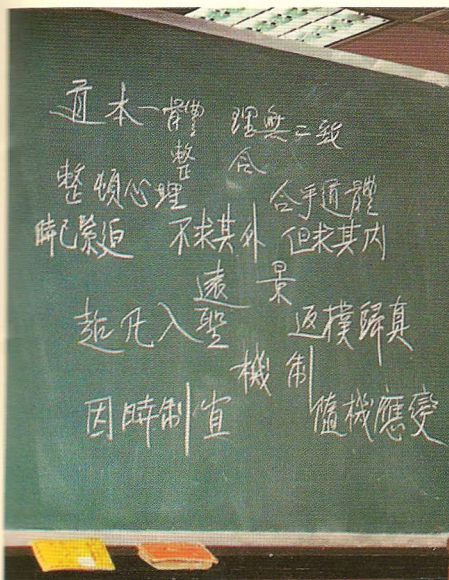 道本一體 理無二致
整 合
整頓心理 合乎道體
時已緊迫 不求其外 但求其內
遠景
超凡入聖 返撲歸真
機制
因時制宜 隨機應變